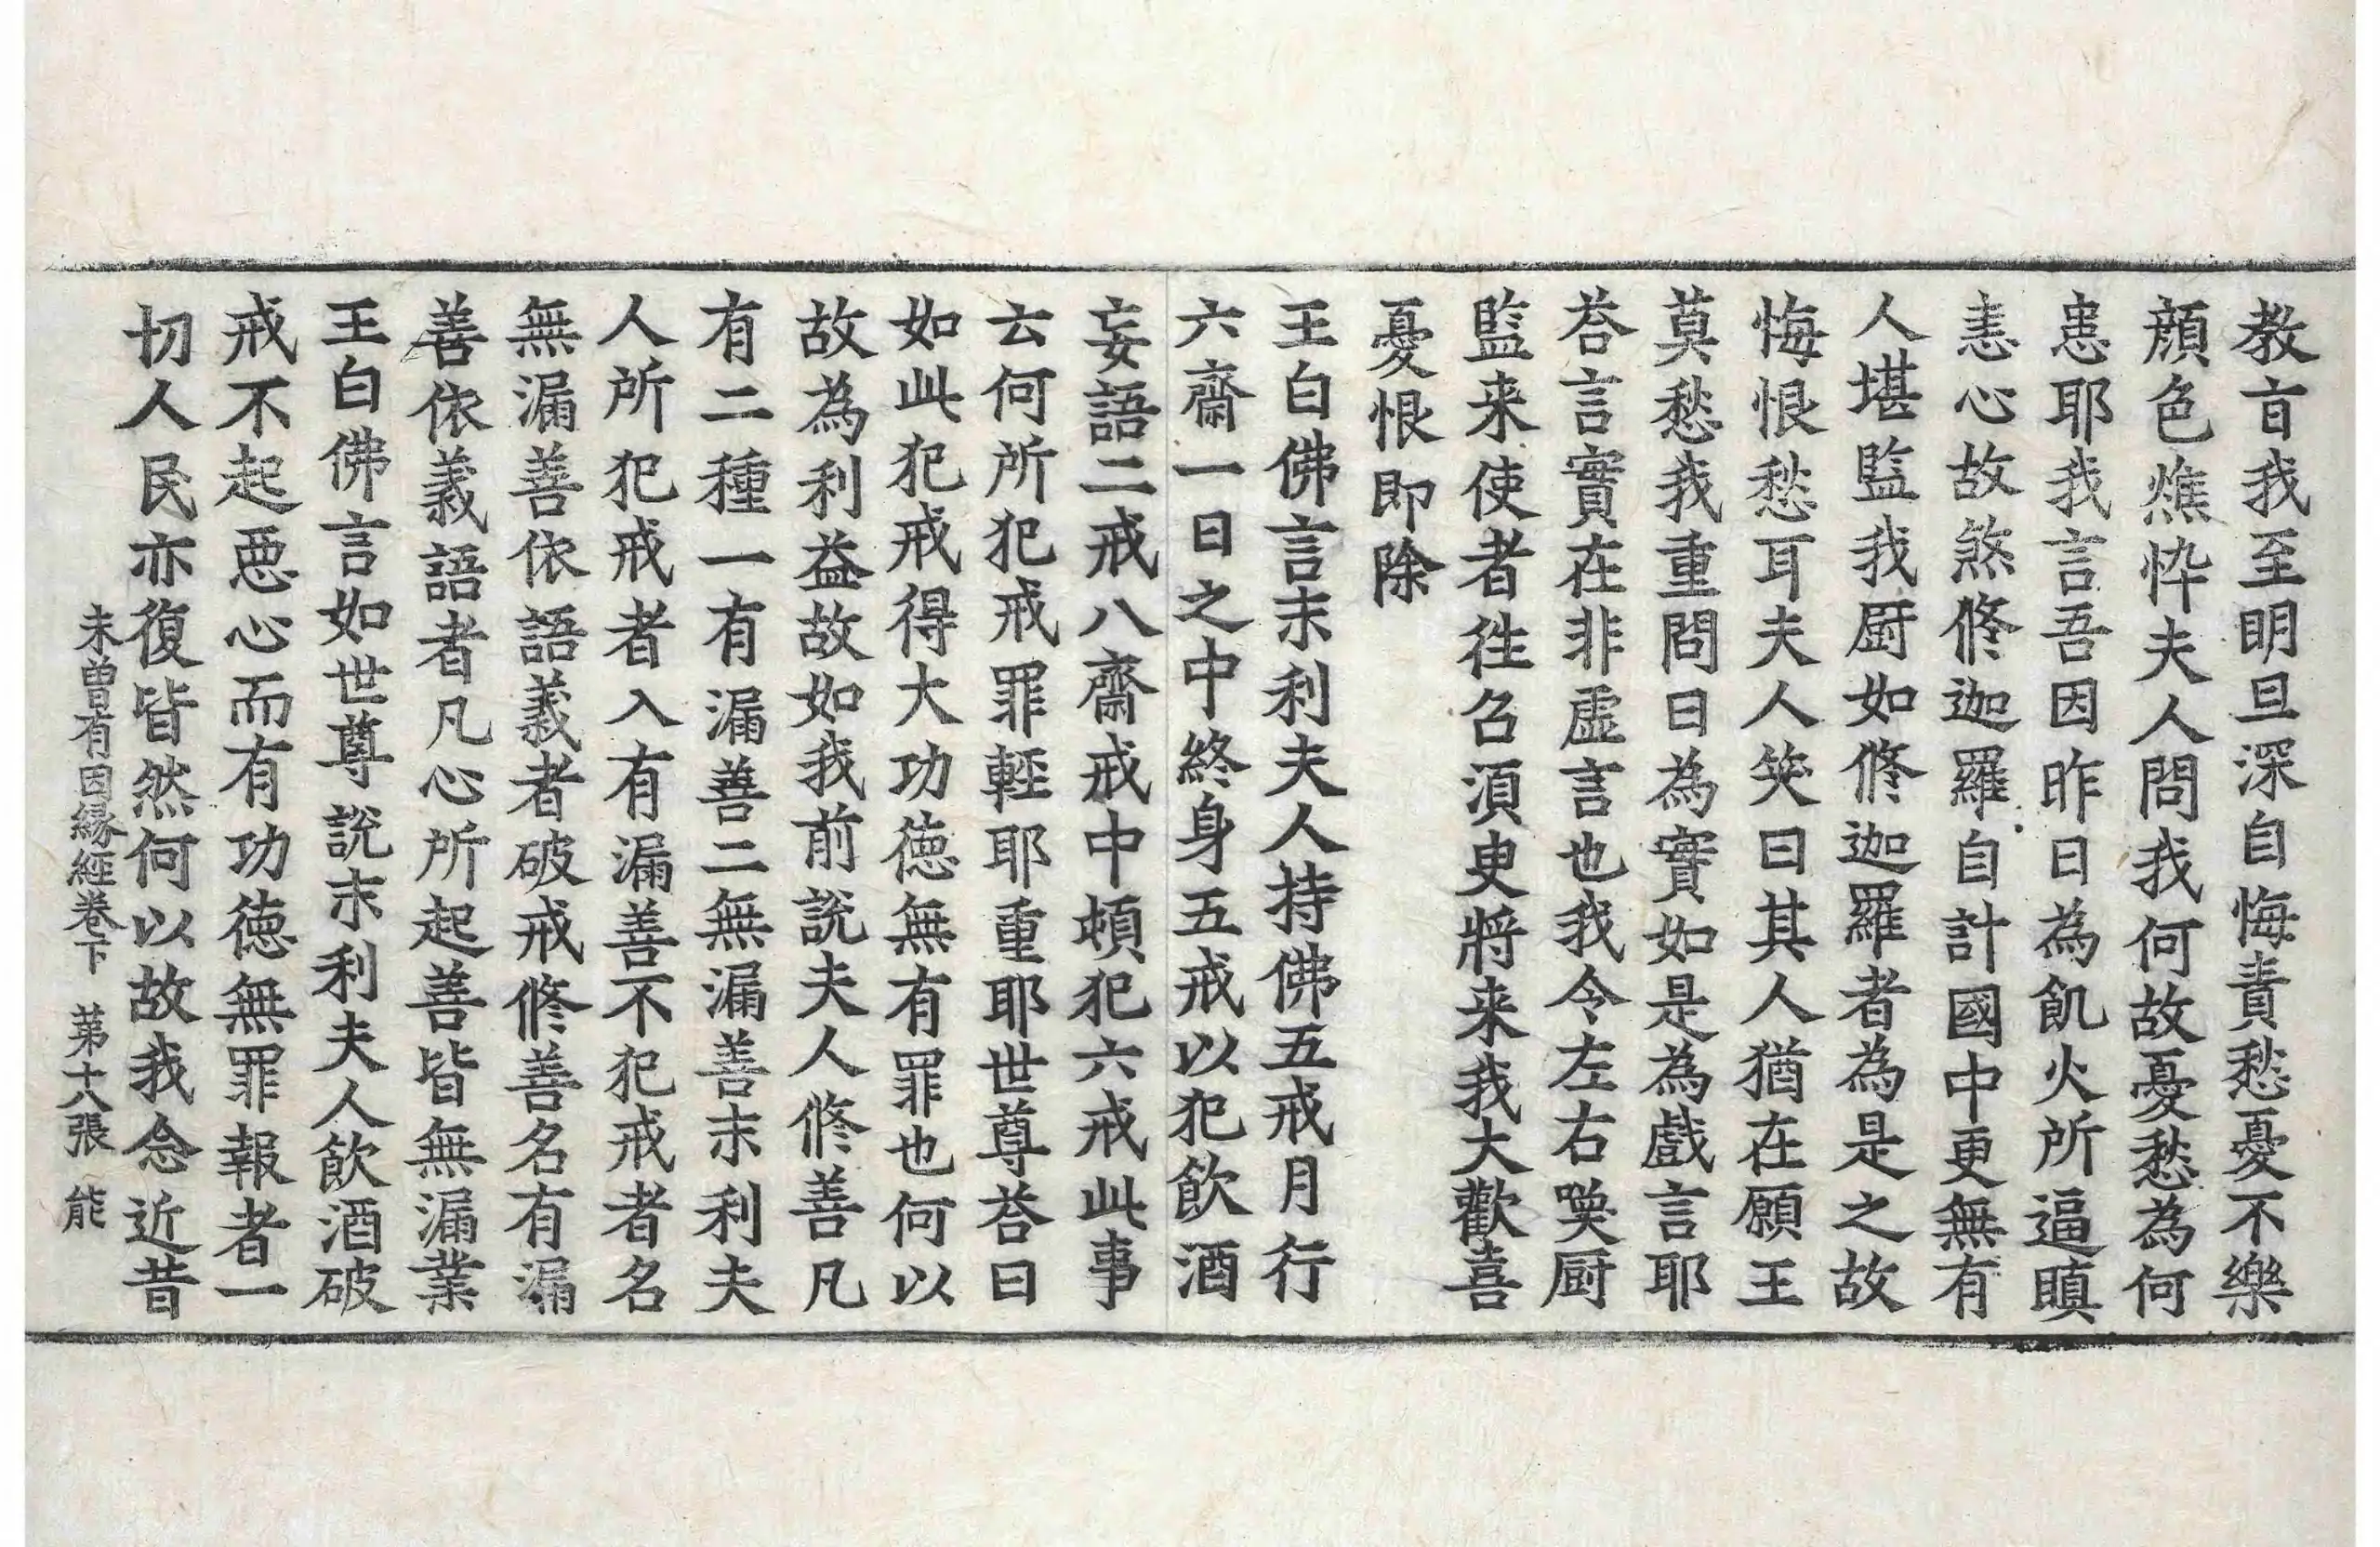 教旨我至明旦深自悔責愁憂不樂
顔色燋悴夫人問我何故憂愁為何
患耶我言吾因昨日為飢火所逼瞋
恚心故煞修迦羅自計國中更無有
人堪監我厨如修迦羅者為是之故
悔恨愁耳夫人笑曰其人猶在願王
莫愁我重問曰為實如是為戲言耶
荅言實在非虛言也我令左右喚厨
監来使者徃召湏臾將来我大歡喜
憂恨即除
王白佛言末利夫人持佛五戒月行
六齋一日之中終身五戒以犯飲酒
妄語二戒八齋戒中頓犯六戒此事
云何所犯戒罪輕耶重耶世尊荅曰
如此犯戒得大功德無有罪也何以
故為利益故如我前說夫人修善凡
有二種一有漏善二無漏善末利夫
人所犯戒者入有漏善不犯戒者名
無漏善依語義者破戒修善名有漏
善依義語者凡心所起善皆無漏業
王白佛言如世尊說末利夫人飲酒破
戒不起惡心而有功德無罪報者一
切人民亦復皆然何以故我念近昔
未曾有因緣經卷下 苐十六張 能